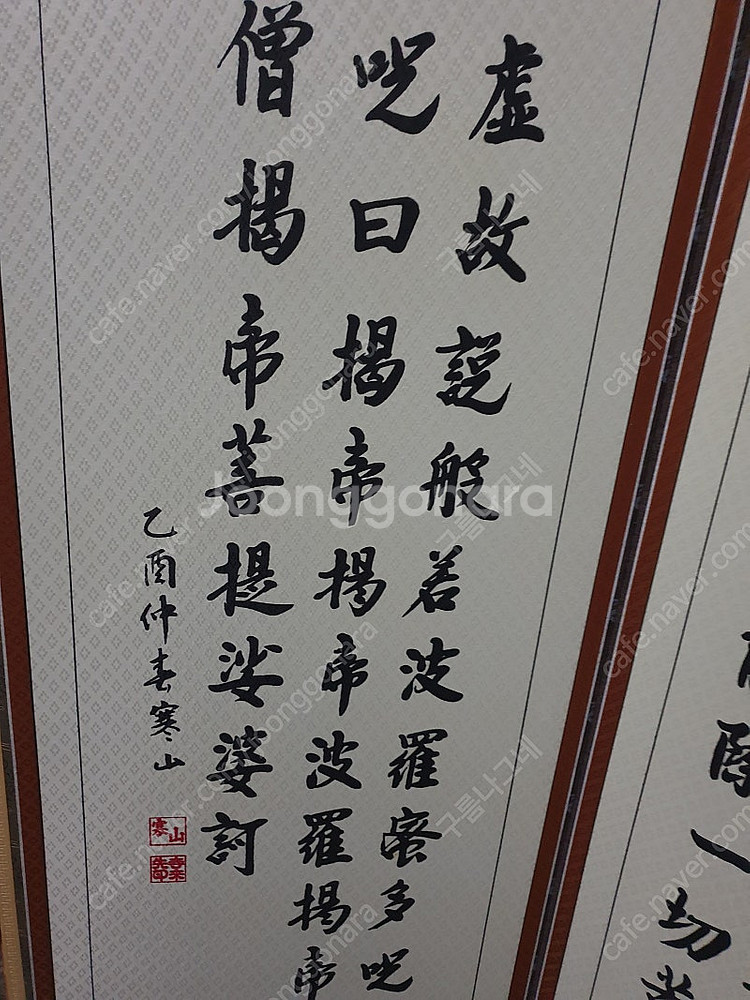 除一切
虛故說般若波羅蜜多呪
呪曰揭帝揭帝波羅揭帝
僧揭帝菩提娑婆訶
乙酉仲春寒山
寒山
Joonggonara
cafe.naver.com/joonggonara
구름나그네